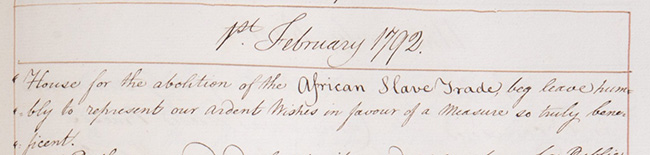 1st. February 1792.
"House for the abolition of the African Slave Trade, beg leave hum=
"bly to represent our ardent Wishes in favour of a Measure so truly bene=
"ficent.